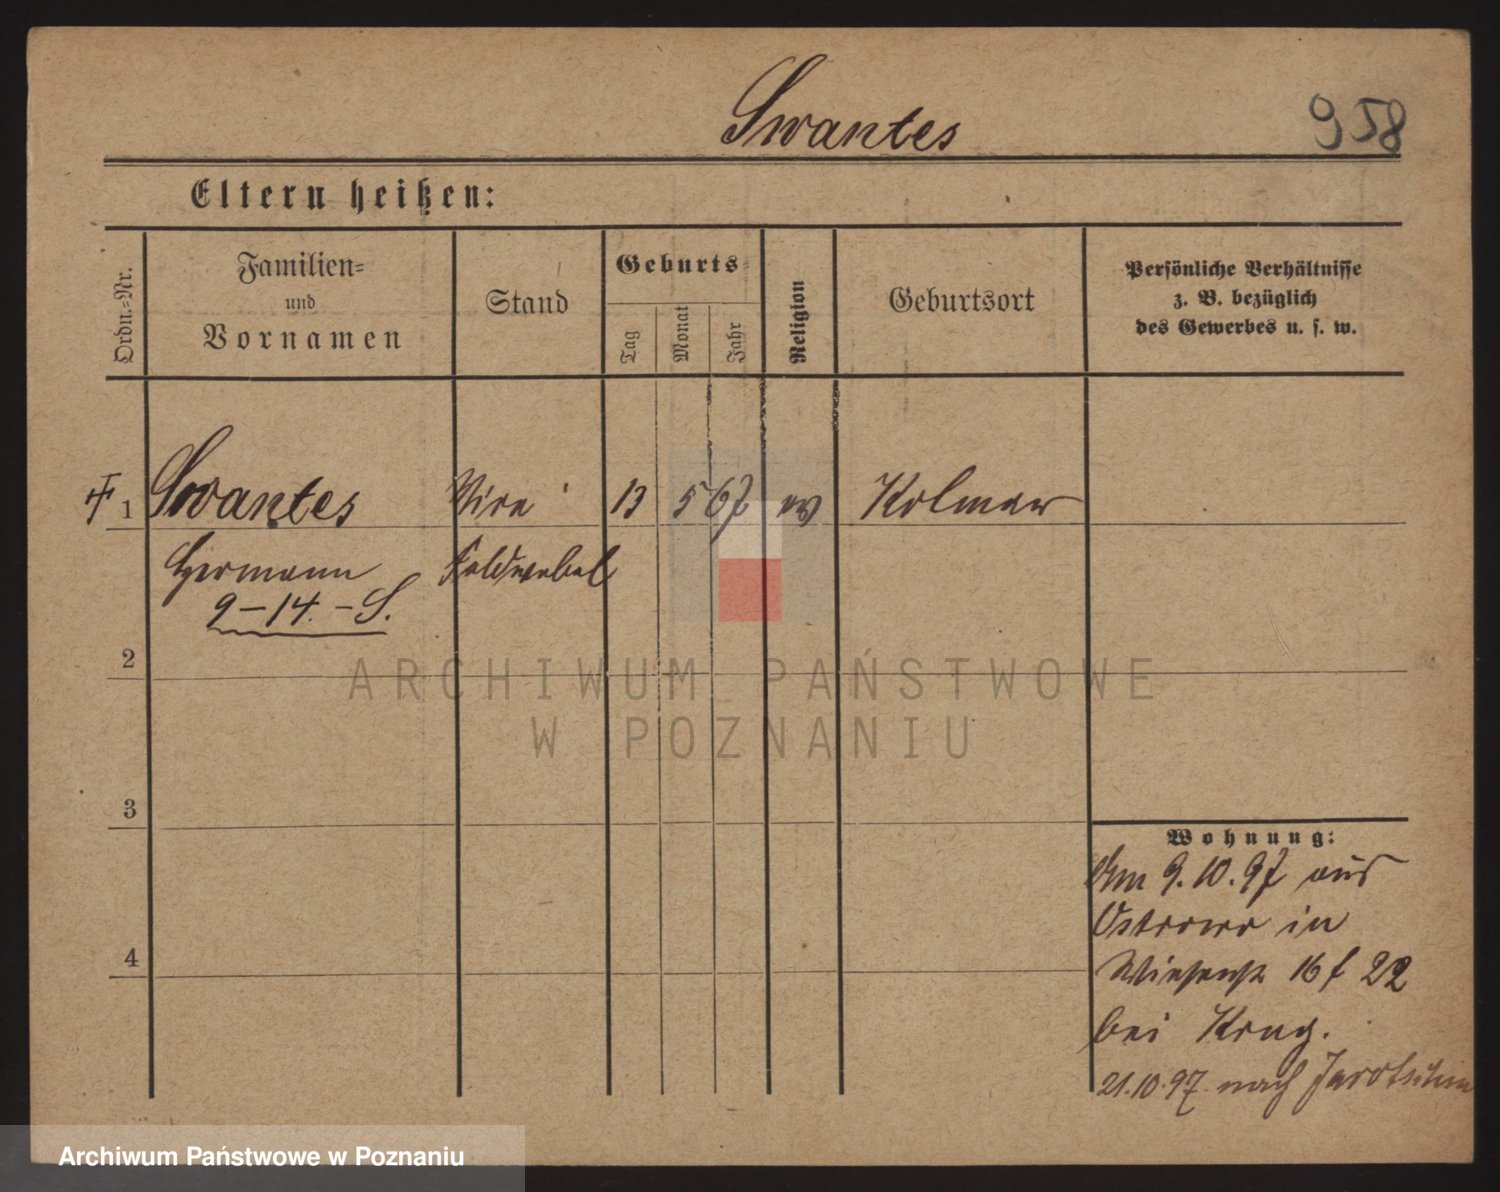 Swantes
958
Eltern heißen:
Ordn.=Nr.
Familien=
und
Vornamen
Stand
Geburts=
Tag
Monat
Jahr
Religion
Geburtsort
Persönliche Verhältnisse
z. B. bezüglich
des Gewerbes u. s. w.
1 Swantes Vice 13 5 67 ev Kolmar
Hermann Feldwebel
9-14.-S.
2
ARCHIWUM PAŃSTWOWE
W POZNANIU
3
4
Wohnung:
Am 9.10.97 aus
Ostrowo in
Wiesenstr 16 f 22
bei Krug.
21.10.97. nach Jarotschin
Archiwum Państwowe w Poznaniu